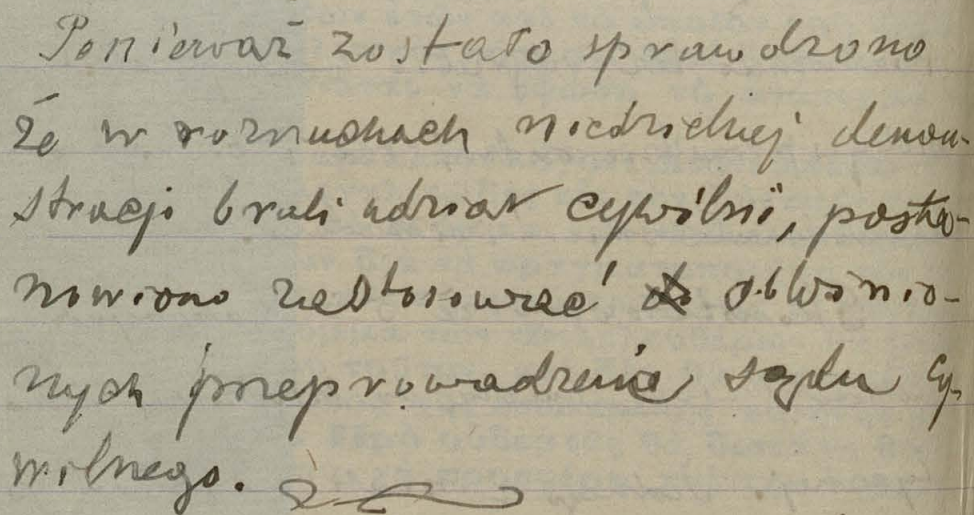 Ponieważ zostało sprawdzono
że w rozruchach niedzielnej demon-
stracji brali udział cywilni, posta-
nowiono zastosować do obwinio-
nych przeprowadzenie sądu cy-
wilnego.